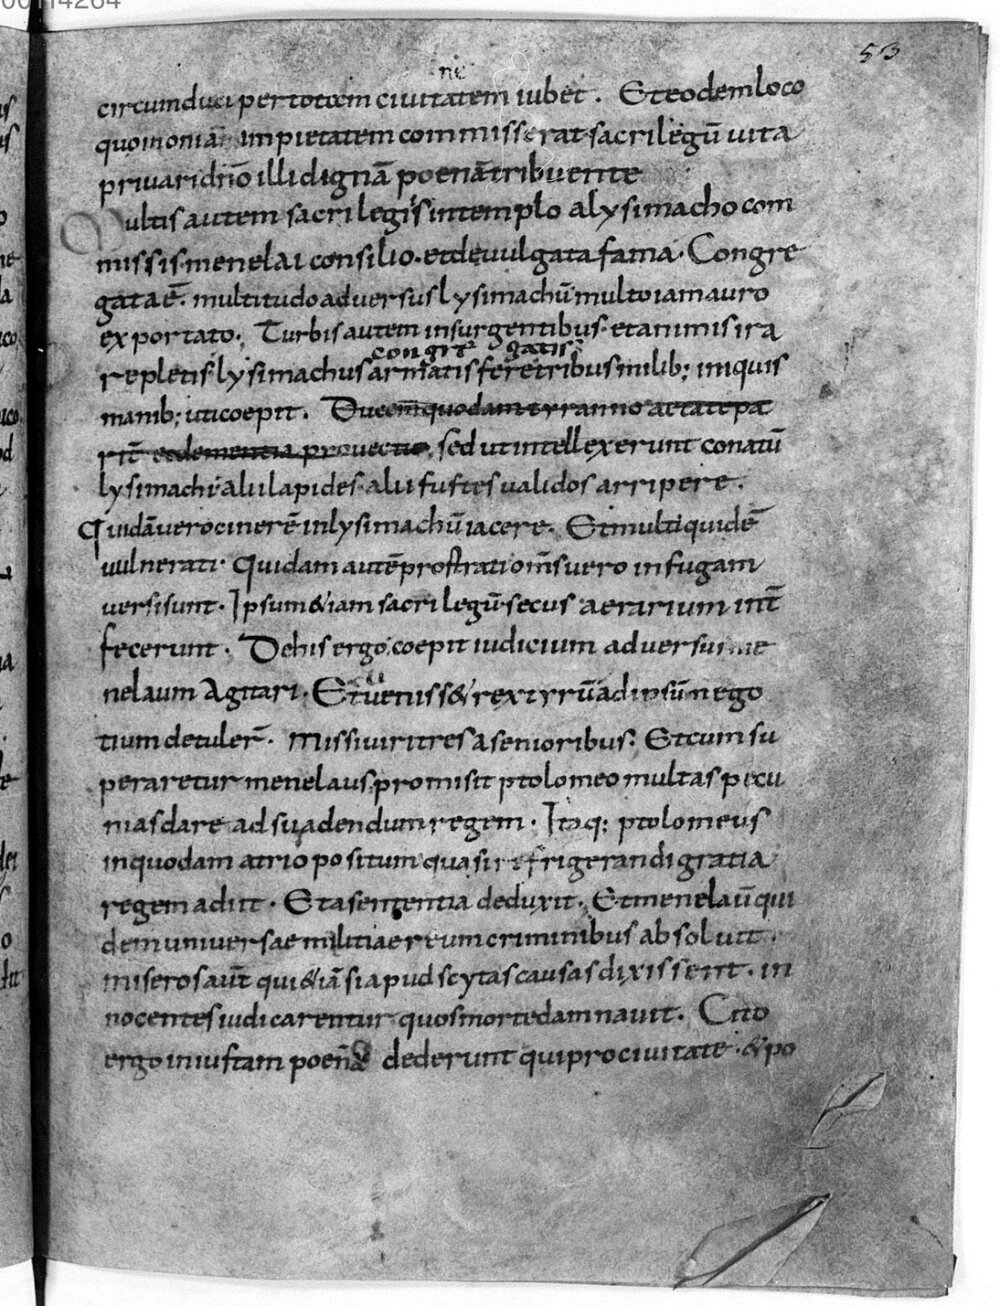 53
circumduci per totam ciuitatem iubet. Et eodem loco
quo in oniā impietatem commisserat sacrilegū uita
priuari dn̄o illi dignā poenā tribuente
Multis autem sacrilegis in templo a lysimacho com
missis menelai consilio. et deuulgata fama. Congre
gata ē. multitudo aduersus lysimachū multo iam auro
exportato. Turbis autem insurgentibus. et animis ira
congre gatis
repletis lysimachus armatis fere tribus milib; iniquis
manib; uti coepit. Duce quodam tyranno aetate pa
rit̄ et dementia prouectio, sed ut intellexerunt conatū
lysimachi. alii lapides. alii fustes ualidos arripere.
Quidā uero cinerē in lysimachū iacere. Et multi quidē
uulnerati. Quidam autē prostrati om̄s uero in fugam
uersi sunt. Ipsum & iam sacrilegū. secus aerarium int̄
fecerunt. De his ergo coepit iudicium aduersum me
nelaum Agitari. Et ueniss& rex tyrū ad ipsū nego
tium detuler̄. missi uiri tres a senioribus. Et cum su
peraretur menelaus, promisit ptolomeo multas pecu
nias dare ad suadendum regem. Itaq: ptolomeus
in quodam atrio positum quasi refrigerandi gratia
regem adiit. Et a sententia deduxit. Et menelaū qui
dem uniuersae militiae reum criminibus absoluit.
miseros aut̄ qui & iā si apud scytas causas dixissent. in
nocentes iudicarentur. quos morte damnauit. Cito
ergo iniustam poenā dederunt qui pro ciuitate. & po